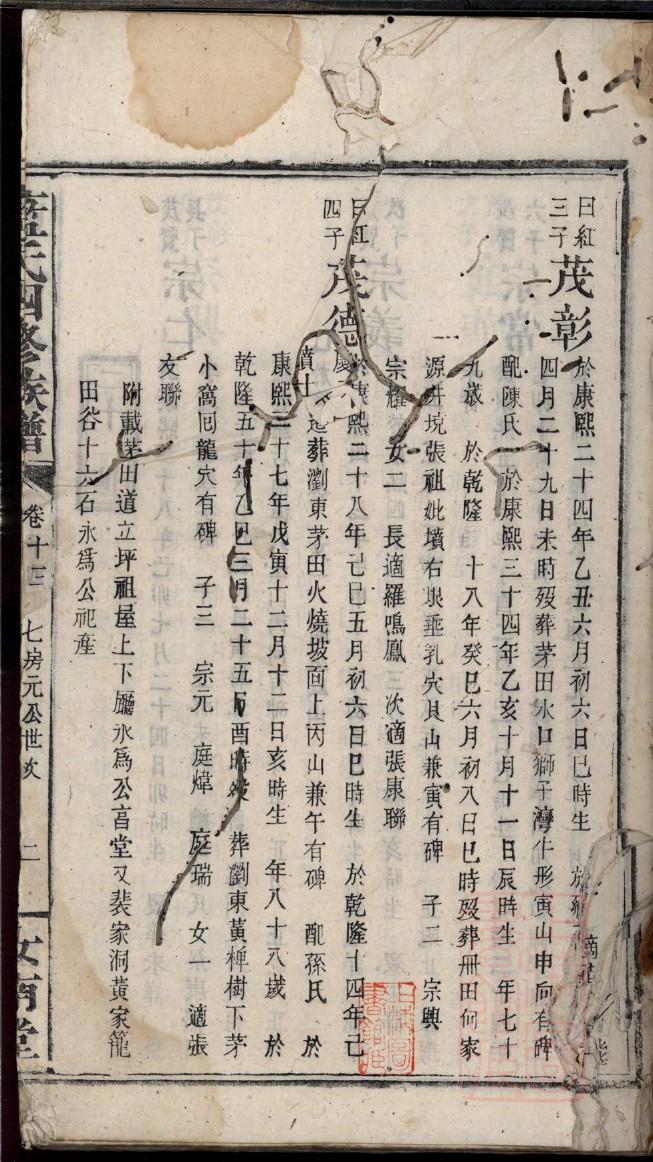 曰紅三子茂彰
於康熙二十四年乙丑六月初六日巳時生 於
四月二十九日未時殁葬茅田水口獅子灣牛形寅山申向有碑
配陳氏 於康熙三十四年乙亥十月十一日辰時生 年七十
九歲 於乾隆 十八年癸巳六月初八日巳時殁葬冊田何家
源井境張祖妣墳右埌垂乳穴艮山兼寅有碑 子二 宗興
宗耀 女二 長適羅鳴鳳 次適張康聯
曰紅四子茂德
於康熙二十八年己巳五月初六日巳時生 於乾隆十四年己
墳 葬瀏東茅田火燒坡面上丙山兼午有碑 配孫氏 於
康熙三十七年戊寅十二月十二日亥時生 年八十八歲 於
乾隆五十年乙巳三月二十五日酉時殁 葬瀏東黃樟樹下茅
小窩囘龍穴有碑 子三 宗元 庭煒 庭瑞 女一 適張
友聯
附載茅田道立坪祖屋上下廳永爲公亯堂又裴家洞黃家籠
田谷十六石永爲公祀產
氏四修族譜
卷十三
七房元公世次
二